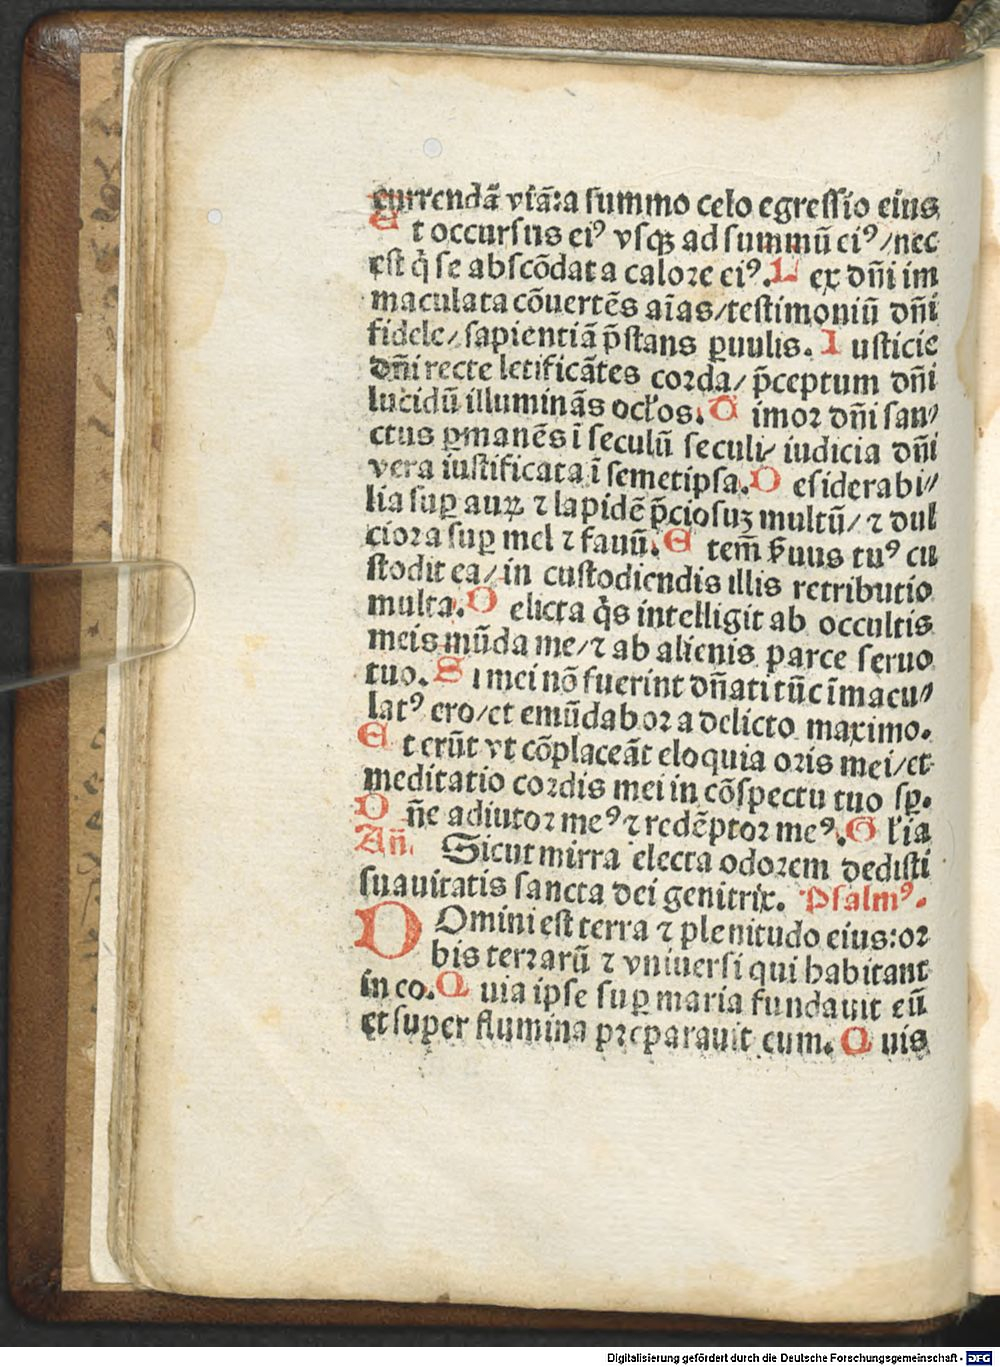 currendã viã:a summo celo egressio eius
E t occursus eiꝰ vsqꝫ ad summũ eiꝰ/nec
est q̃ se abscõdat a calore eiꝰ. L ex dñi im
maculata cõuertẽs aĩas/testimoniũ dñi
fidele/sapientiã p̃stans ꝑuulis. I usticie
dñi recte letificãtes corda/p̃ceptum dñi
lucidũ illuminãs ocl'os. T imor dñi san⸗
ctus ꝑmanẽs ĩ seculũ seculi/iudicia dñi
vera iustificata ĩ semetipsa. D esiderabi⸗
lia suꝑ auꝝ ⁊ lapidẽ p̃ciosuꝫ multũ/⁊ dul
ciora suꝑ mel ⁊ fauũ. E tem̃ ẜuus tuꝰ cu
stodit ea/in custodiendis illis retributio
multa. D elicta q̃s intelligit ab occultis
meis mũda me/⁊ ab alienis parce seruo
tuo. S i mei nõ fuerint dñati tũc ĩmacu⸗
latꝰ ero/et emũdabor a delicto maximo.
E t erũt vt cõplaceãt eloquia oris mei/et
meditatio cordis mei in cõspectu tuo sꝑ.
D ñe adiutor meꝰ ⁊ redẽptor meꝰ. G l'ia
Añ. Sicut mirra electa odorem dedisti
suauitatis sancta dei genitrix. Psalmꝰ.
DOmini est terra ⁊ plenitudo eius:or
bis terrarũ ⁊ vniuersi qui habitant
in eo. Q uia ipse suꝑ maria fundauit eũ
et super flumina preparauit eum. Q uis
Digitalisierung gefördert durch die Deutsche Forschungsgemeinschaft - DFG